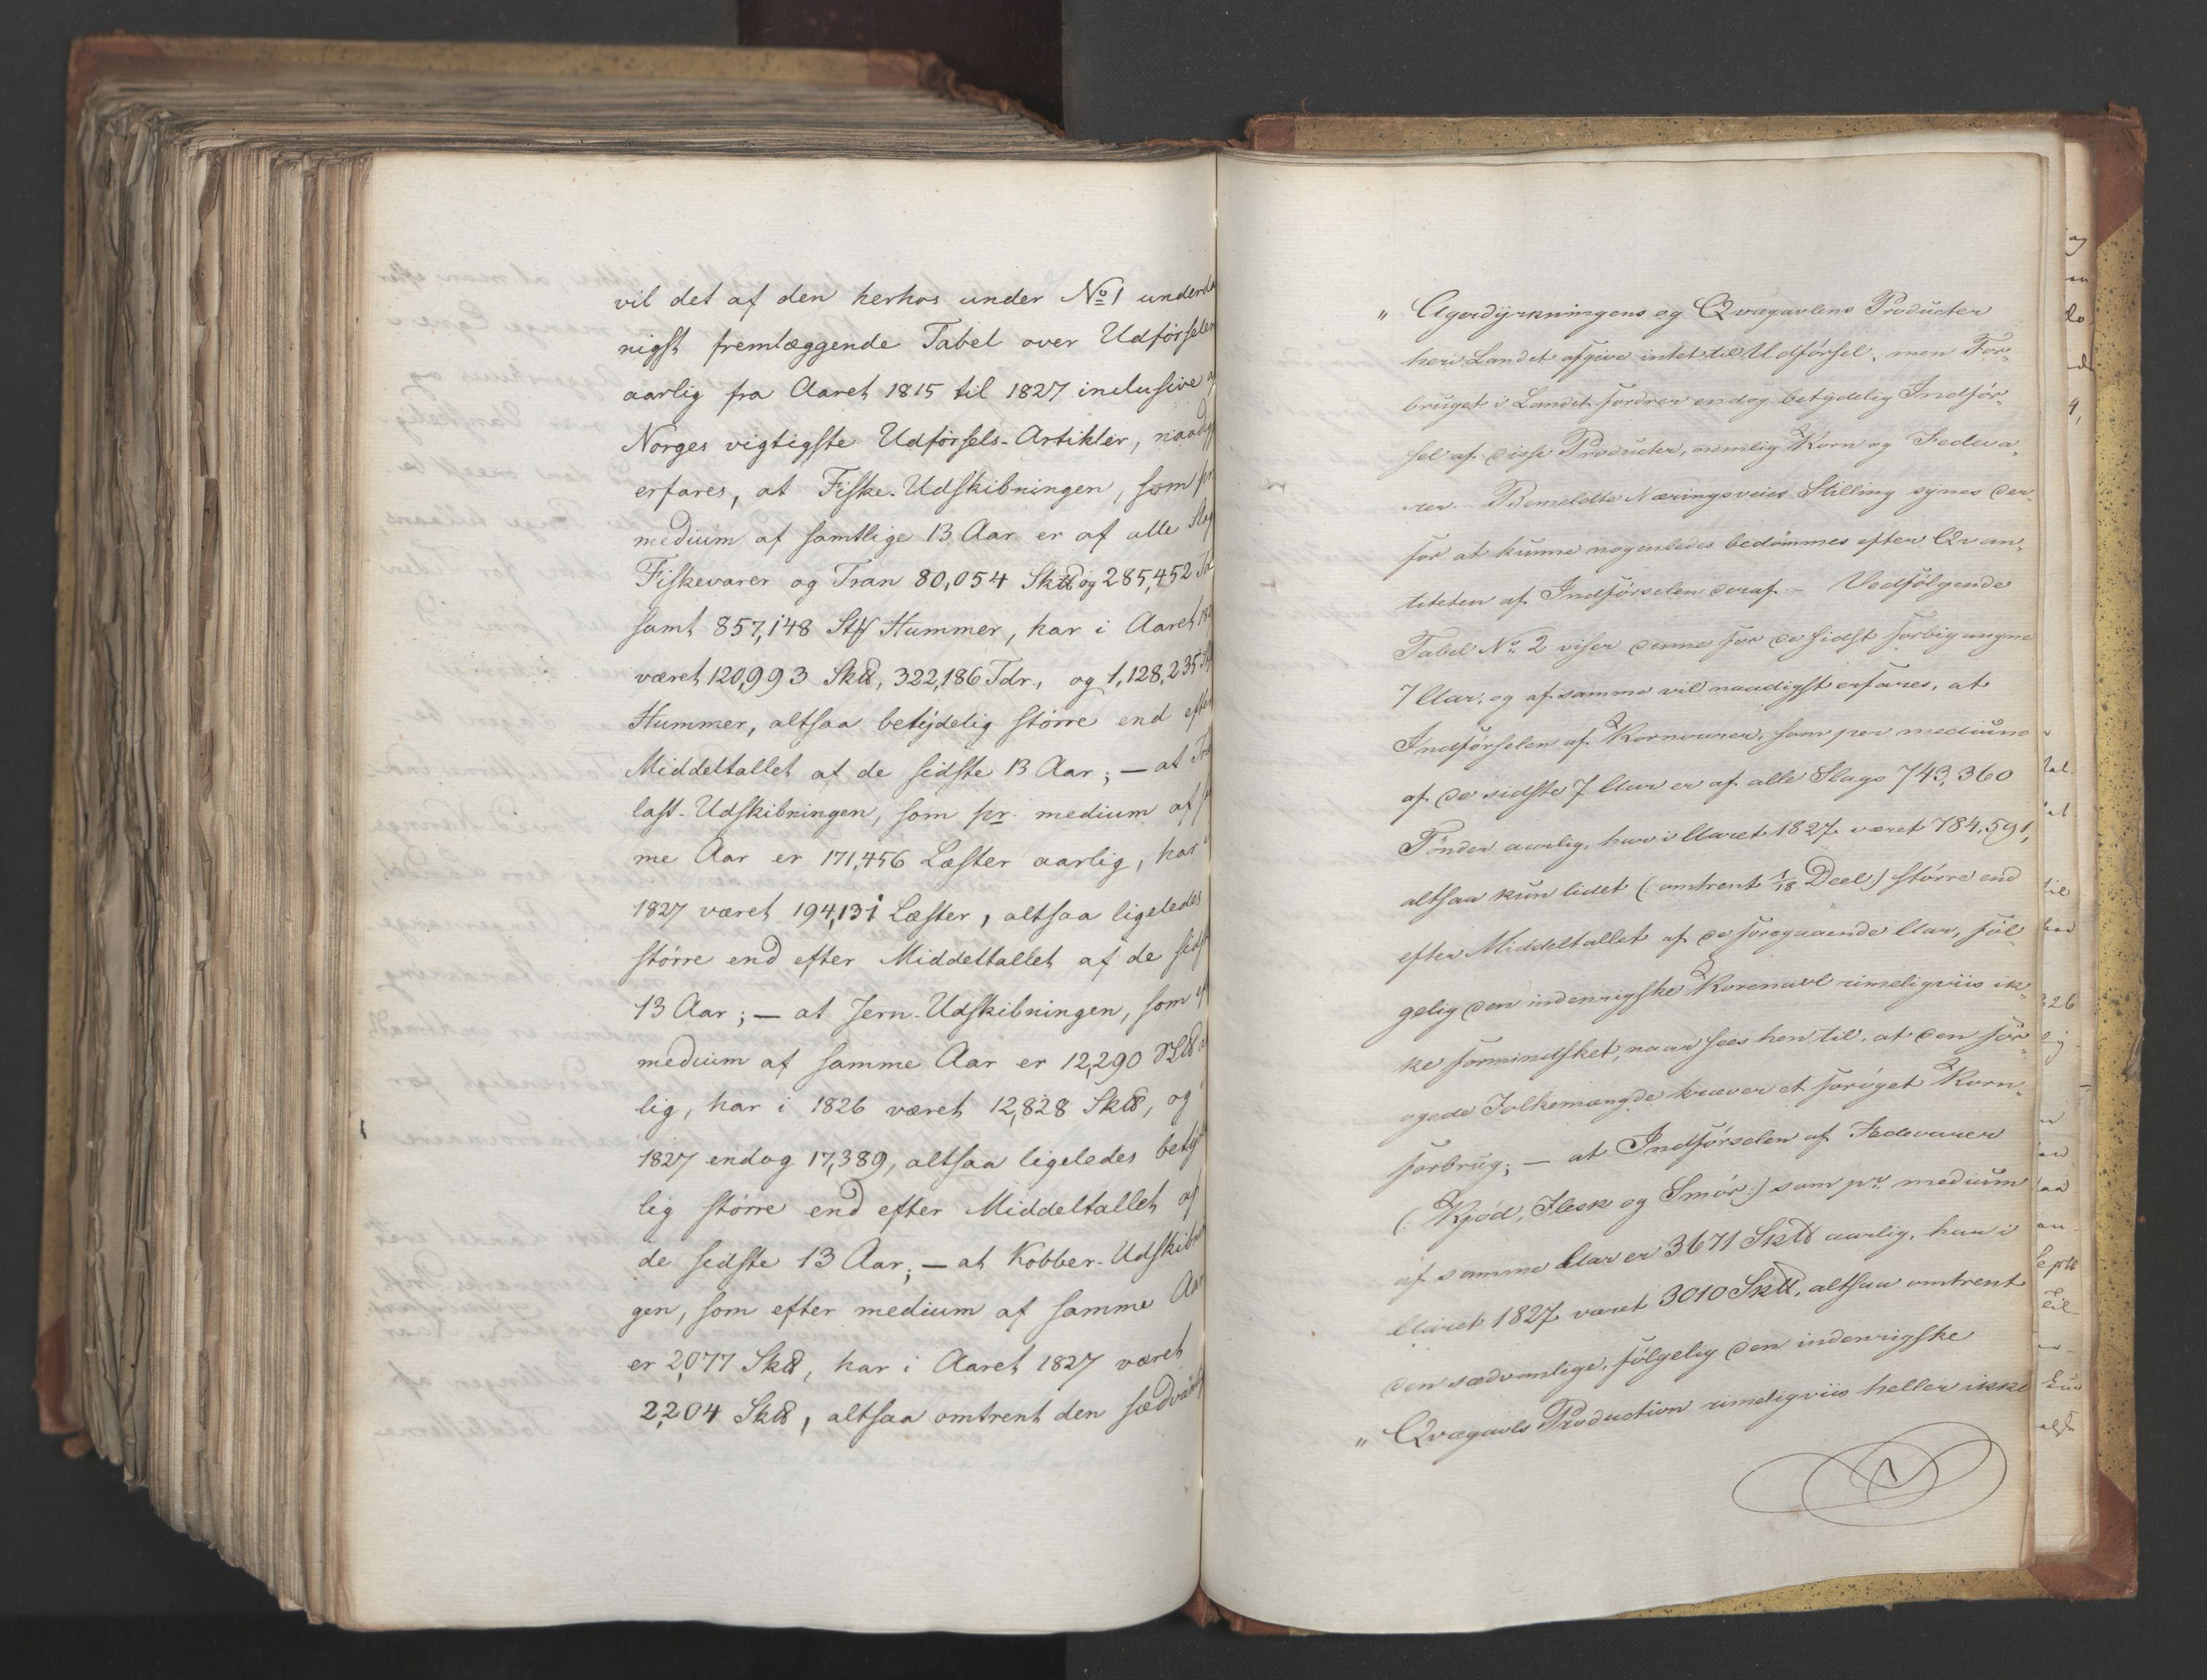 vil det af den herhos under No 1 under
nigst fremlæggende Tabel over Udførselen
aarlig fra Aaret 1815 til 1827 inclusive
Norges vigtigste Udførsels-Artikler, naadigst
erfares, at Fiske-Udskibningen, som pr
medium af samtlige 13 Aar er af alle Slag
Fiskevarer og Tran 80,054 Sk℔ og 285,452 Td
samt 857,148 Stk Hummer, har i Aaret 18
været 120,993 Sk℔, 322,186 Tdr., og 1,128,235 St
Hummer, altsaa betydelig større end efter
Middeltallet af de sidste 13 Aar; — at Træ
last-Udskibningen, som pr. medium af
me Aar er 171,456 Læster aarlig, har i
1827 været 194,131 Læster, altsaa ligeledes
større end efter Middeltallet af de sidst
13 Aar; — at Jern-Udskibningen, som
medium af samme Aar er 12,290 Sk℔
lig, har i 1826 været 12,828 Sk℔, og i
1827 endog 17,389, altsaa ligeledes bety
lig større end efter Middeltallet af
de sidste 13 Aar; — at Kobber-Udskibnin
gen, som efter medium af samme Aar
er 2,077 Sk℔, har i Aaret 1827 været
2,204 Sk℔, altsaa omtrent den sædvanl
" Agerdyrkningens og Qvægavlens Producter
heri Landet afgive intet til Udførsel, men For-
bruget i Landet fordrer endog betydelig Indfør-
sel af disse Producter, nemlig Korn og Fedeva-
rer. Bemeldte Næringsveies Stilling synes der-
for at kunne nogenledes bedømmes efter Qvan-
titeten af Indførselen deraf. – Vedfølgende
Tabel No 2 viser denne for de sidst forbigangne
7 Aar, og af samme vil naadigst erfares, at
Indførselen af Kornvarer, som per medium
af de sidste 7 Aar er af alle Slags 743,360
Tønder aarlig, har i Aaret 1827 været 784,591,
altsaa kun lidet (omtrent 1/18 Deel) større end
efter Middeltallet af de foregaaende Aar, føl-
gelig den indenrigske Kornavl rimeligviis ik-
ke formindsket, naar sees hen til, at den for-
øgede Folkemængde kræver et forøget Korn-
forbrug; — at Indførselen af Fedevarer
(: Kjød, Flesk og Smør :) som pr. medium
af samme Aar er 3671 Sk℔ aarlig, har i
Aaret 1827 været 3010 Sk℔, altsaa omtrent
den sædvanlige, følgelig den indenrigske
" Qvægavls Production rimeligviis heller ikke